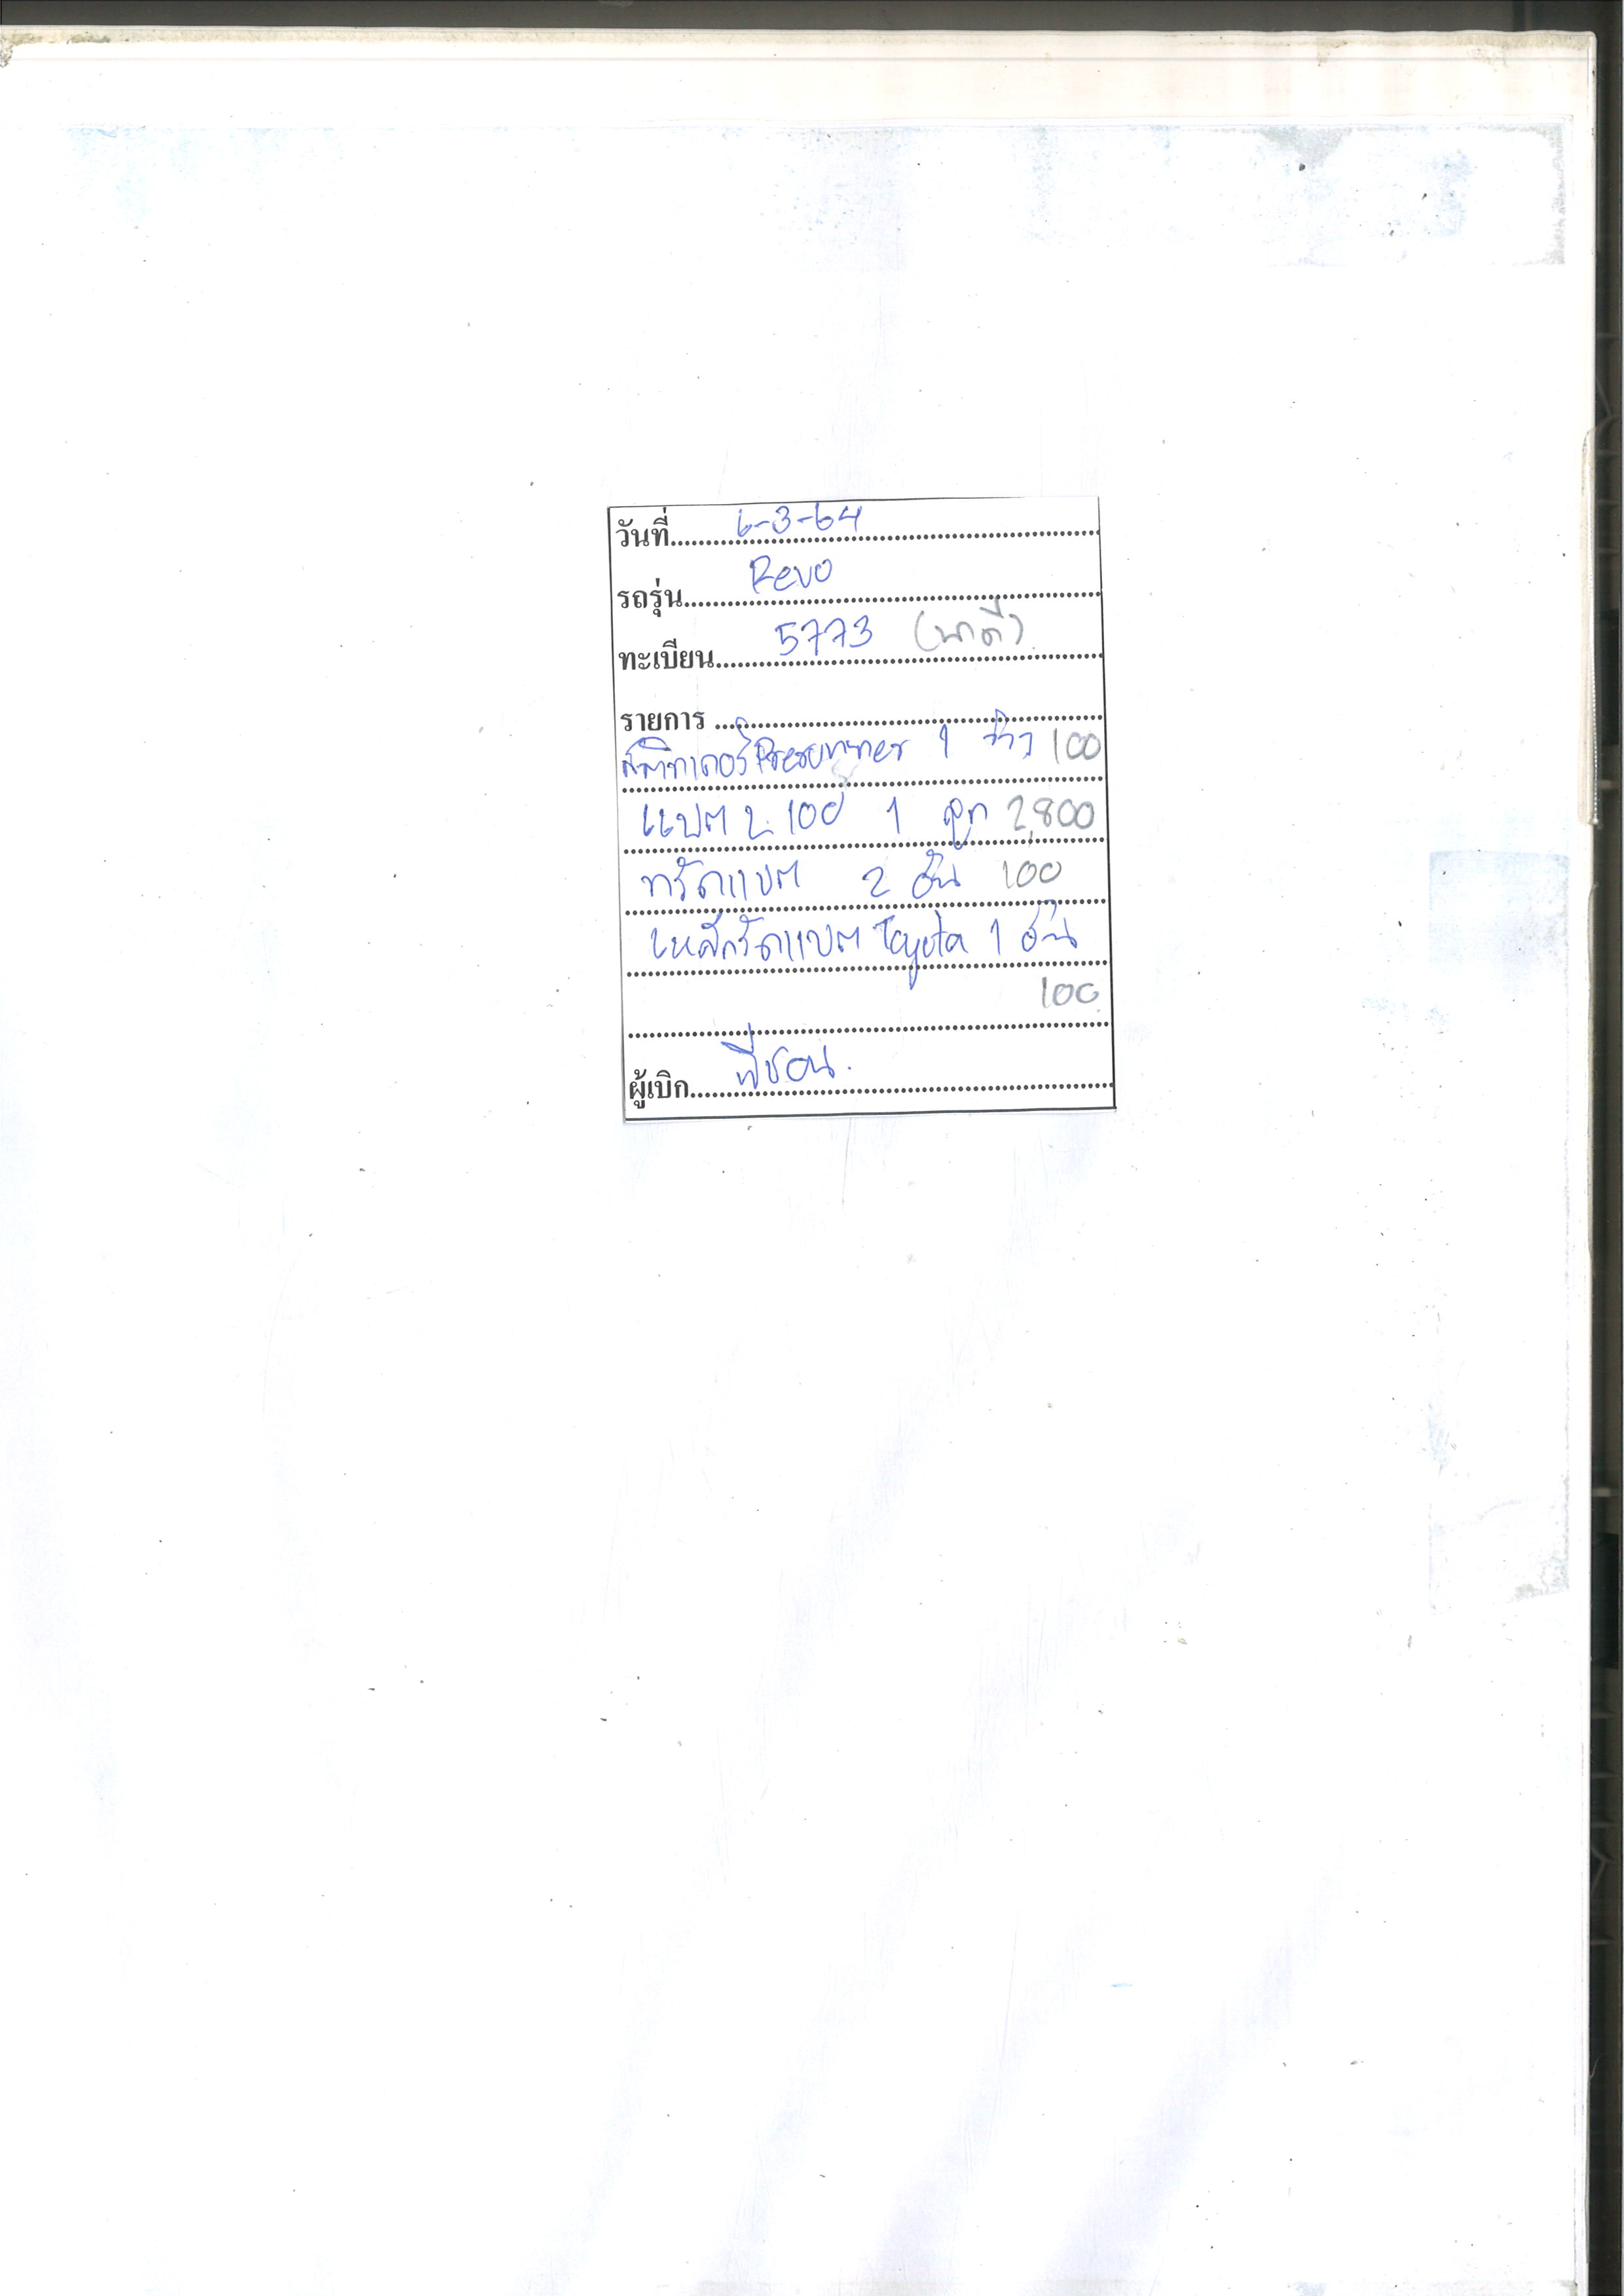 วันที่ 6-3-64
รถรุ่น Revo
ทะเบียน 5773 (นาดี)
รายการ
สติกเกอร์ Prerunner 1 100
แบต 2. 100 1 ลูก 2,800
รัดแบต 2 อัน 100
เหล็กรัดแบต Toyota 1 อัน
100
ผู้เบิก พี่ชอน.